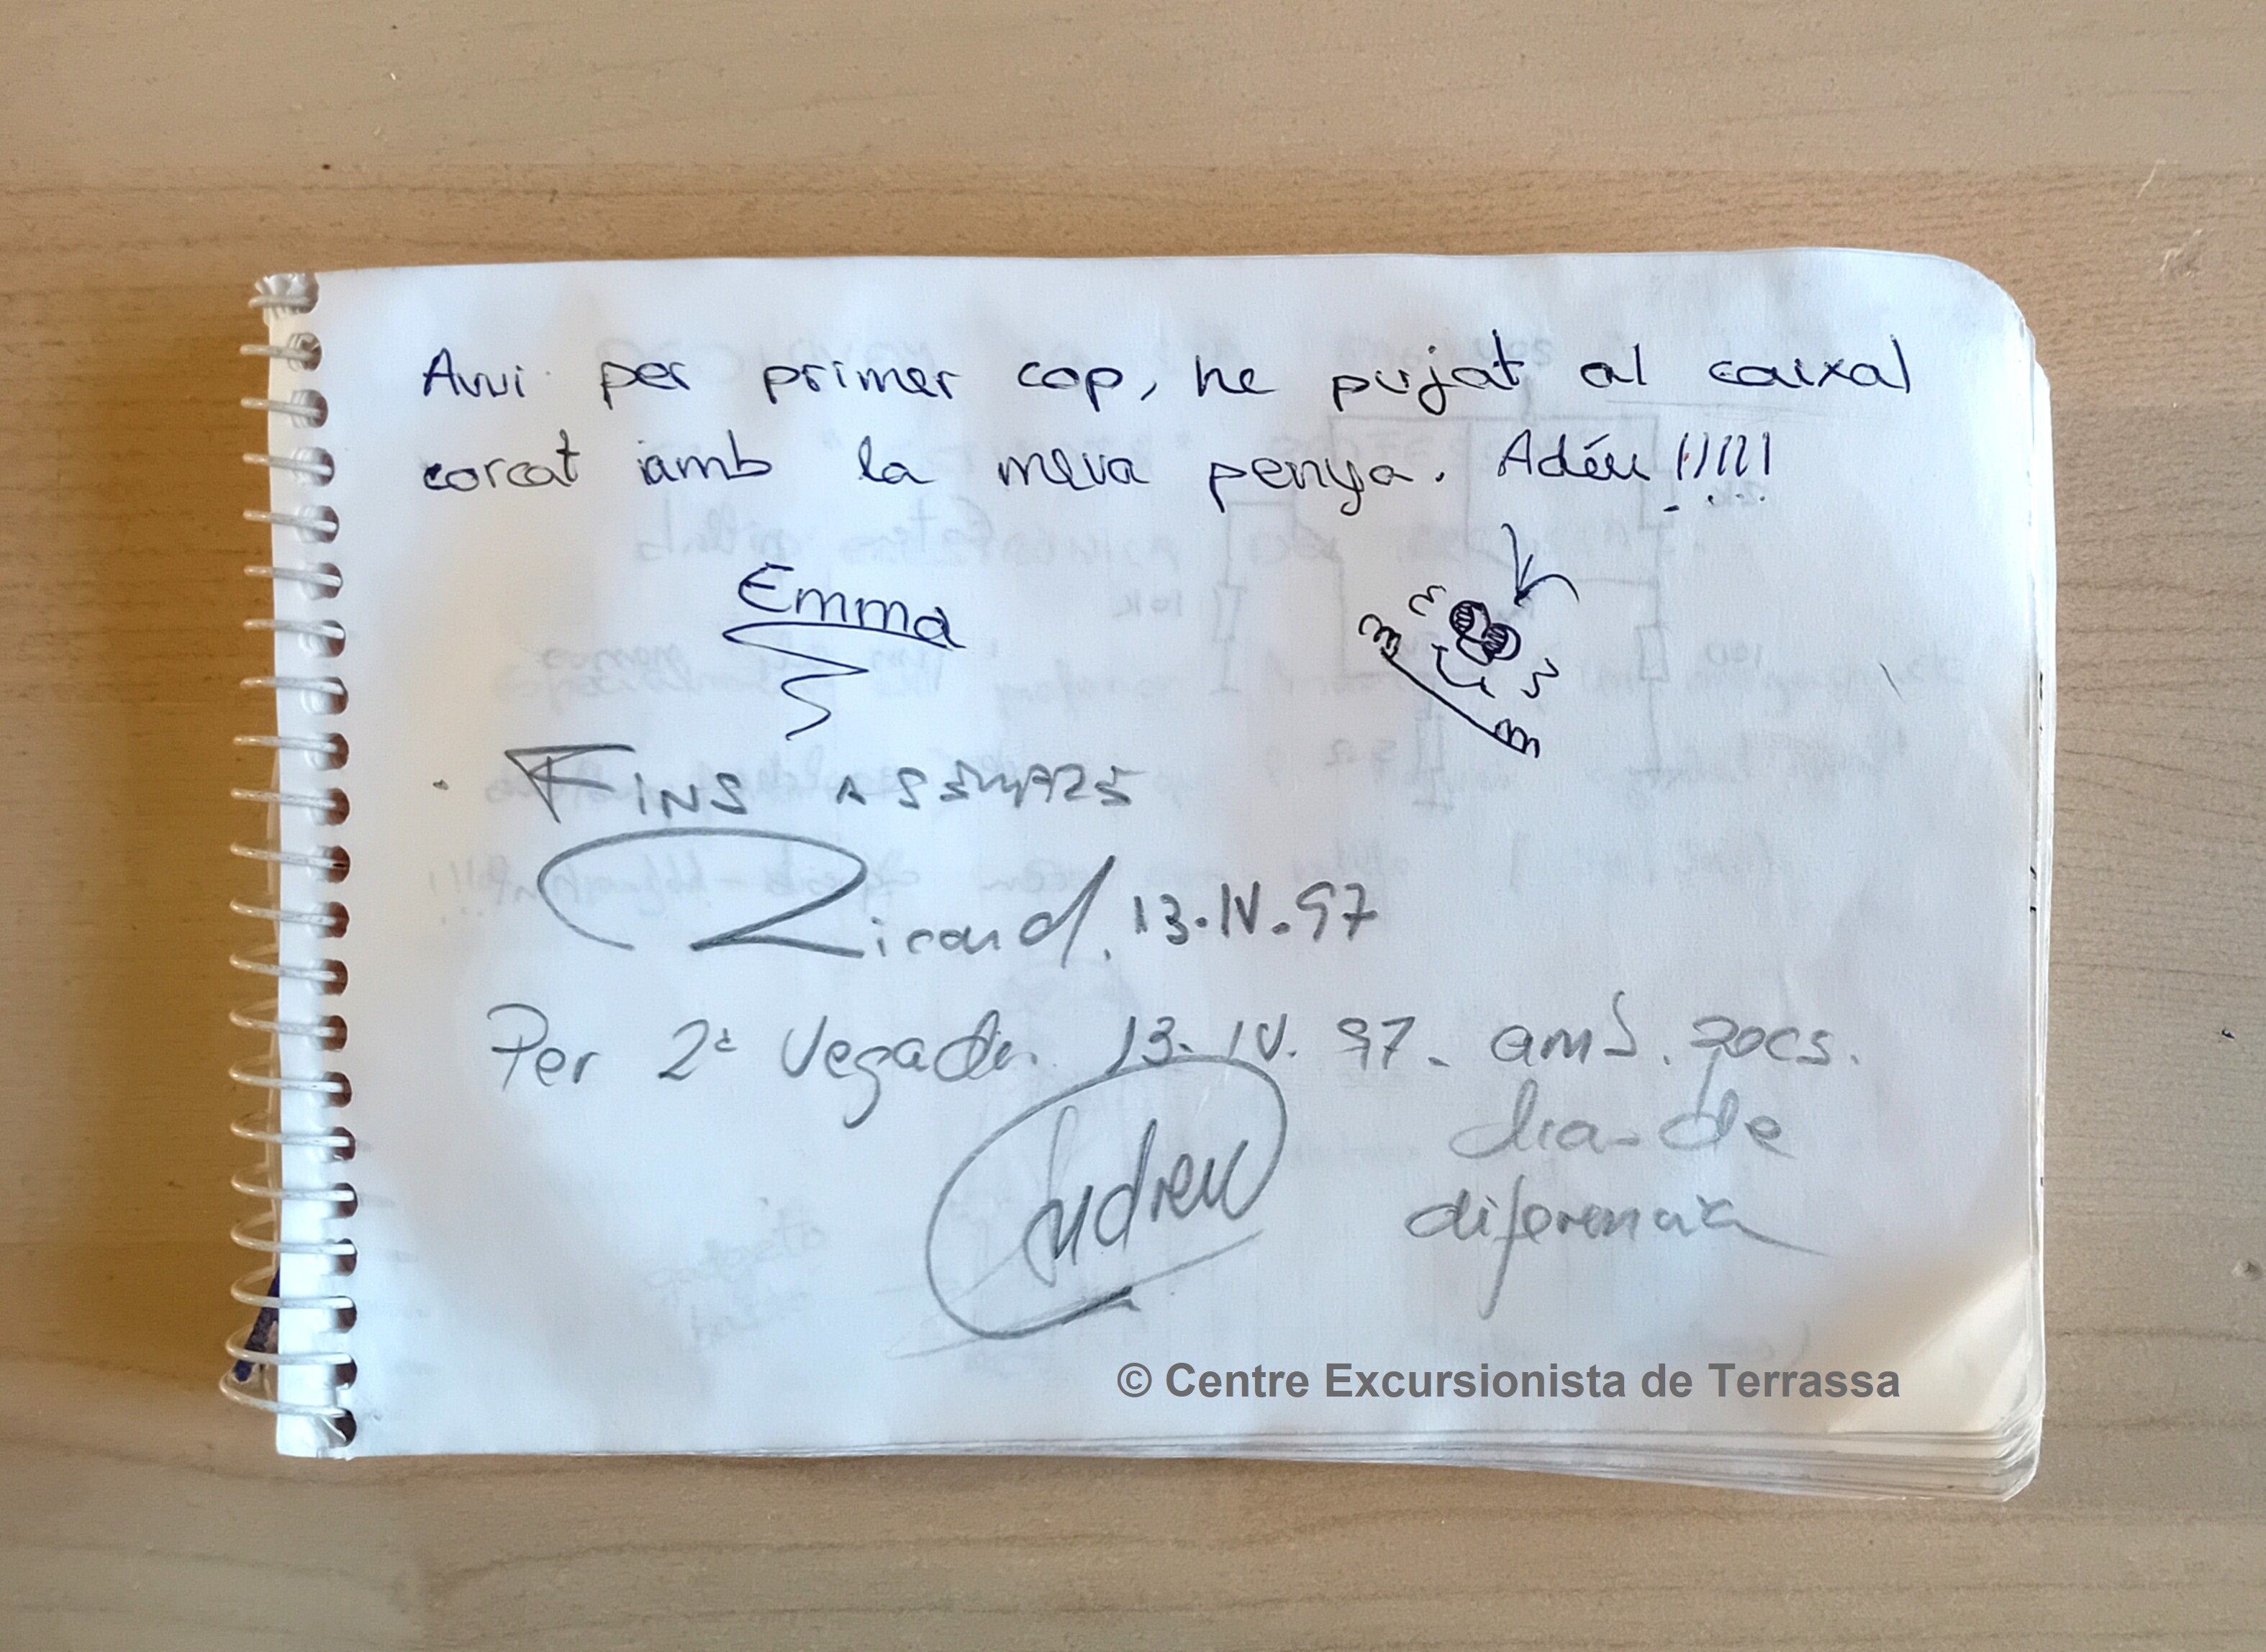 Avui per primer cop, he pujat al caixal
corcat amb la meva penya. Adéu !!!!!
Emma
FINS
Ricard. 13.IV.97
Per 2ª Vegada. 13.IV.97. amb. pocs.
dia de
diferencia
Andreu
© Centre Excursionista de Terrassa